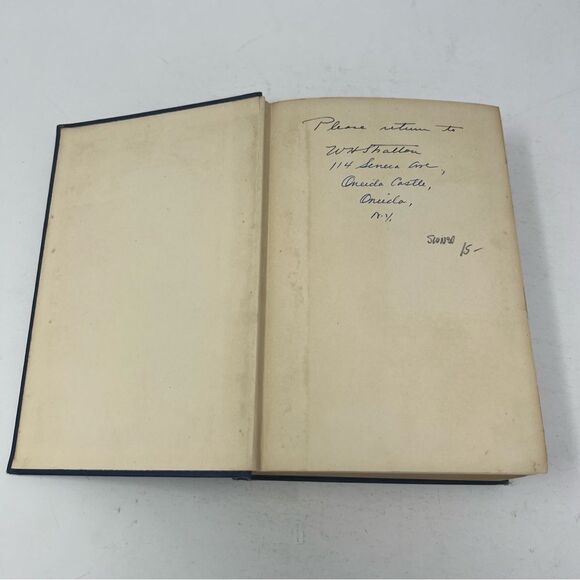 Please return to
WH Stratton
114 Seneca Ave,
Oneida Castle,
Oneida,
N.Y.
SIGNED
15-